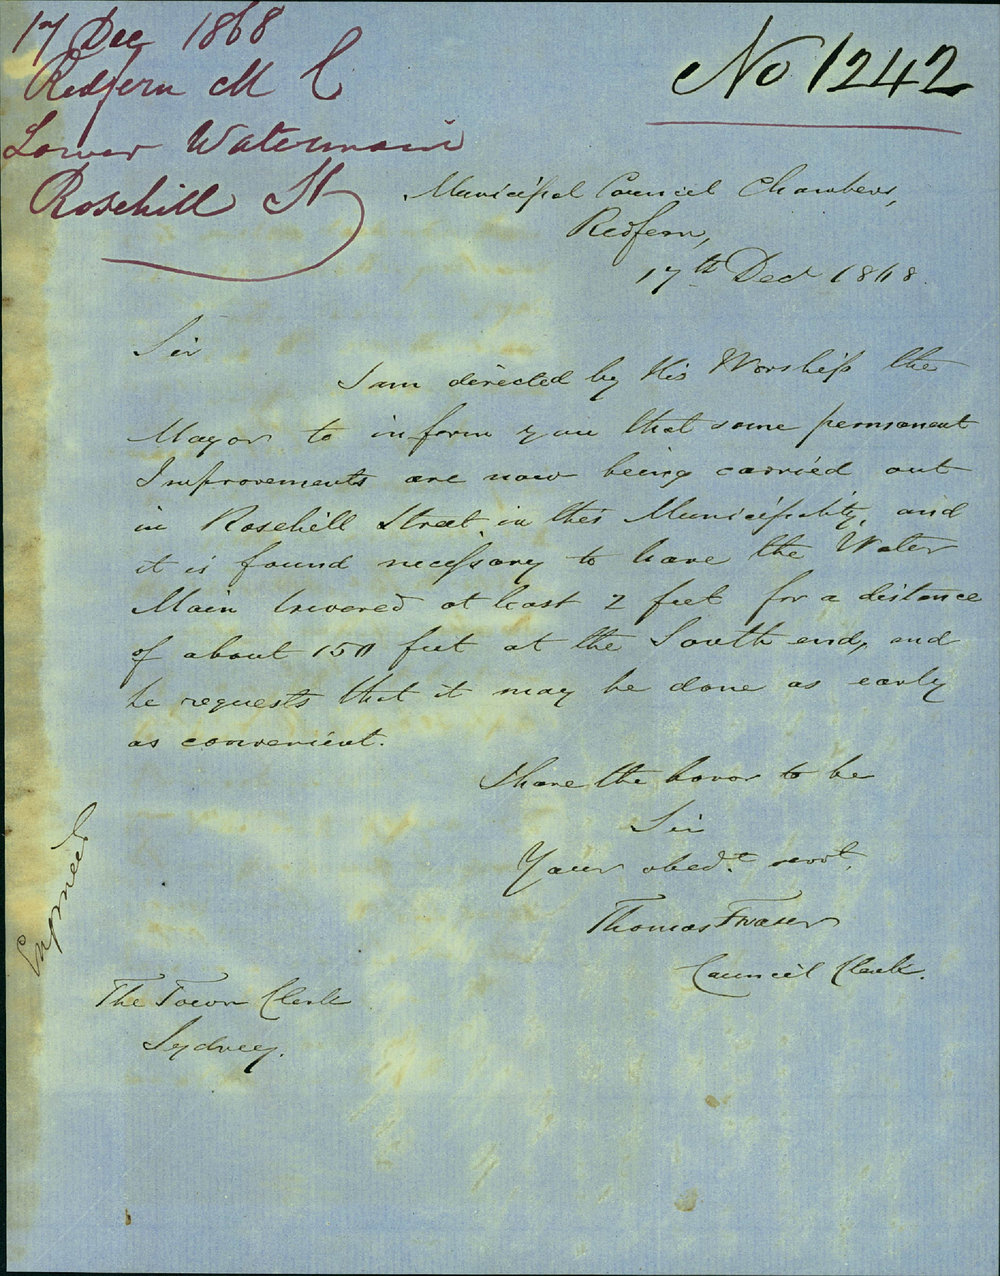 17 Dec 1868
Redfern M C
Lower Watermain
Rosehill St
No 1242
Municipal Council Chambers,
Redfern,
17th Decr 1868.
Sir
I am directed by His Worship the
Mayor to inform you that some permanent
Improvements are now being carried out
in Rosehill Street in this Municipality, and
it is found necessary to have the Water
Main lowered at least 2 feet for a distance
of about 150 feet at the South end, and
he requests that it may be done as early
as convenient.
I have the honor to be
Sir
Your obedt. servt.
Thomas Fraser
Council Clerk.
The Town Clerk
Sydney.
Engineer